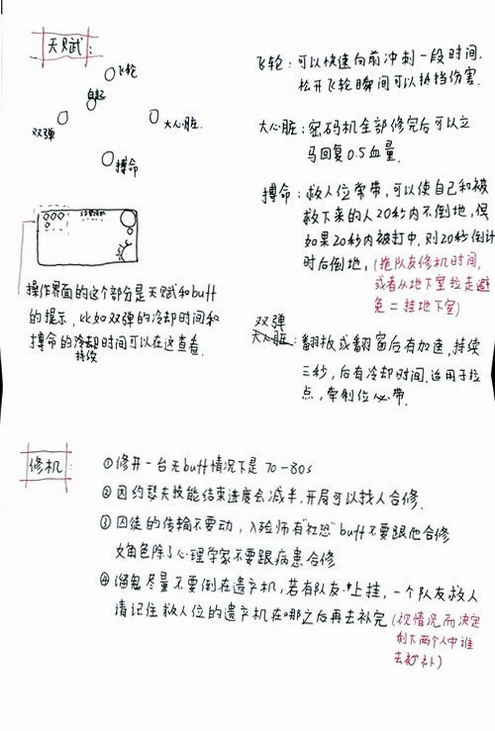 天赋:
飞轮
自起
双弹
大心脏.
搏命
操作界面的这个部分是天赋和buff
的提示，比如双弹的冷却时间和
搏命的冷却时间可以在这查看.
持续
飞轮：可以快速向前冲刺一段时间.
松开飞轮瞬间可以抵挡伤害.
大心脏：密码机全部修完后可以立
马回复0.5血量.
搏命：救人位常带，可以使自己和被
救下来的人20秒内不倒地，但
如果20秒内被打中.则20秒倒计
时后倒地，(拖队友修机时间,
或者从地下室拉走避
免二挂地下室)
双弹
大心脏：翻板或翻窗后有加速，持续
三秒，后有冷却时间.适用于拉
点，牵制位必带.
修机:
①修开一台无buff情况下是70-80s
②因约瑟夫技能结束进度会减半.开局可以找人合修.
③囚徒的传输不要动，入殓师有“社恐”buff不要跟他合修
女角色除了心理学家不要跟病患合修
④溜鬼尽量不要倒在遗产机，若有队友上挂，一个队友救人
请记住救人位的遗产机在哪之后再去补完(视情况而决定
剩下两个人中谁
去补)